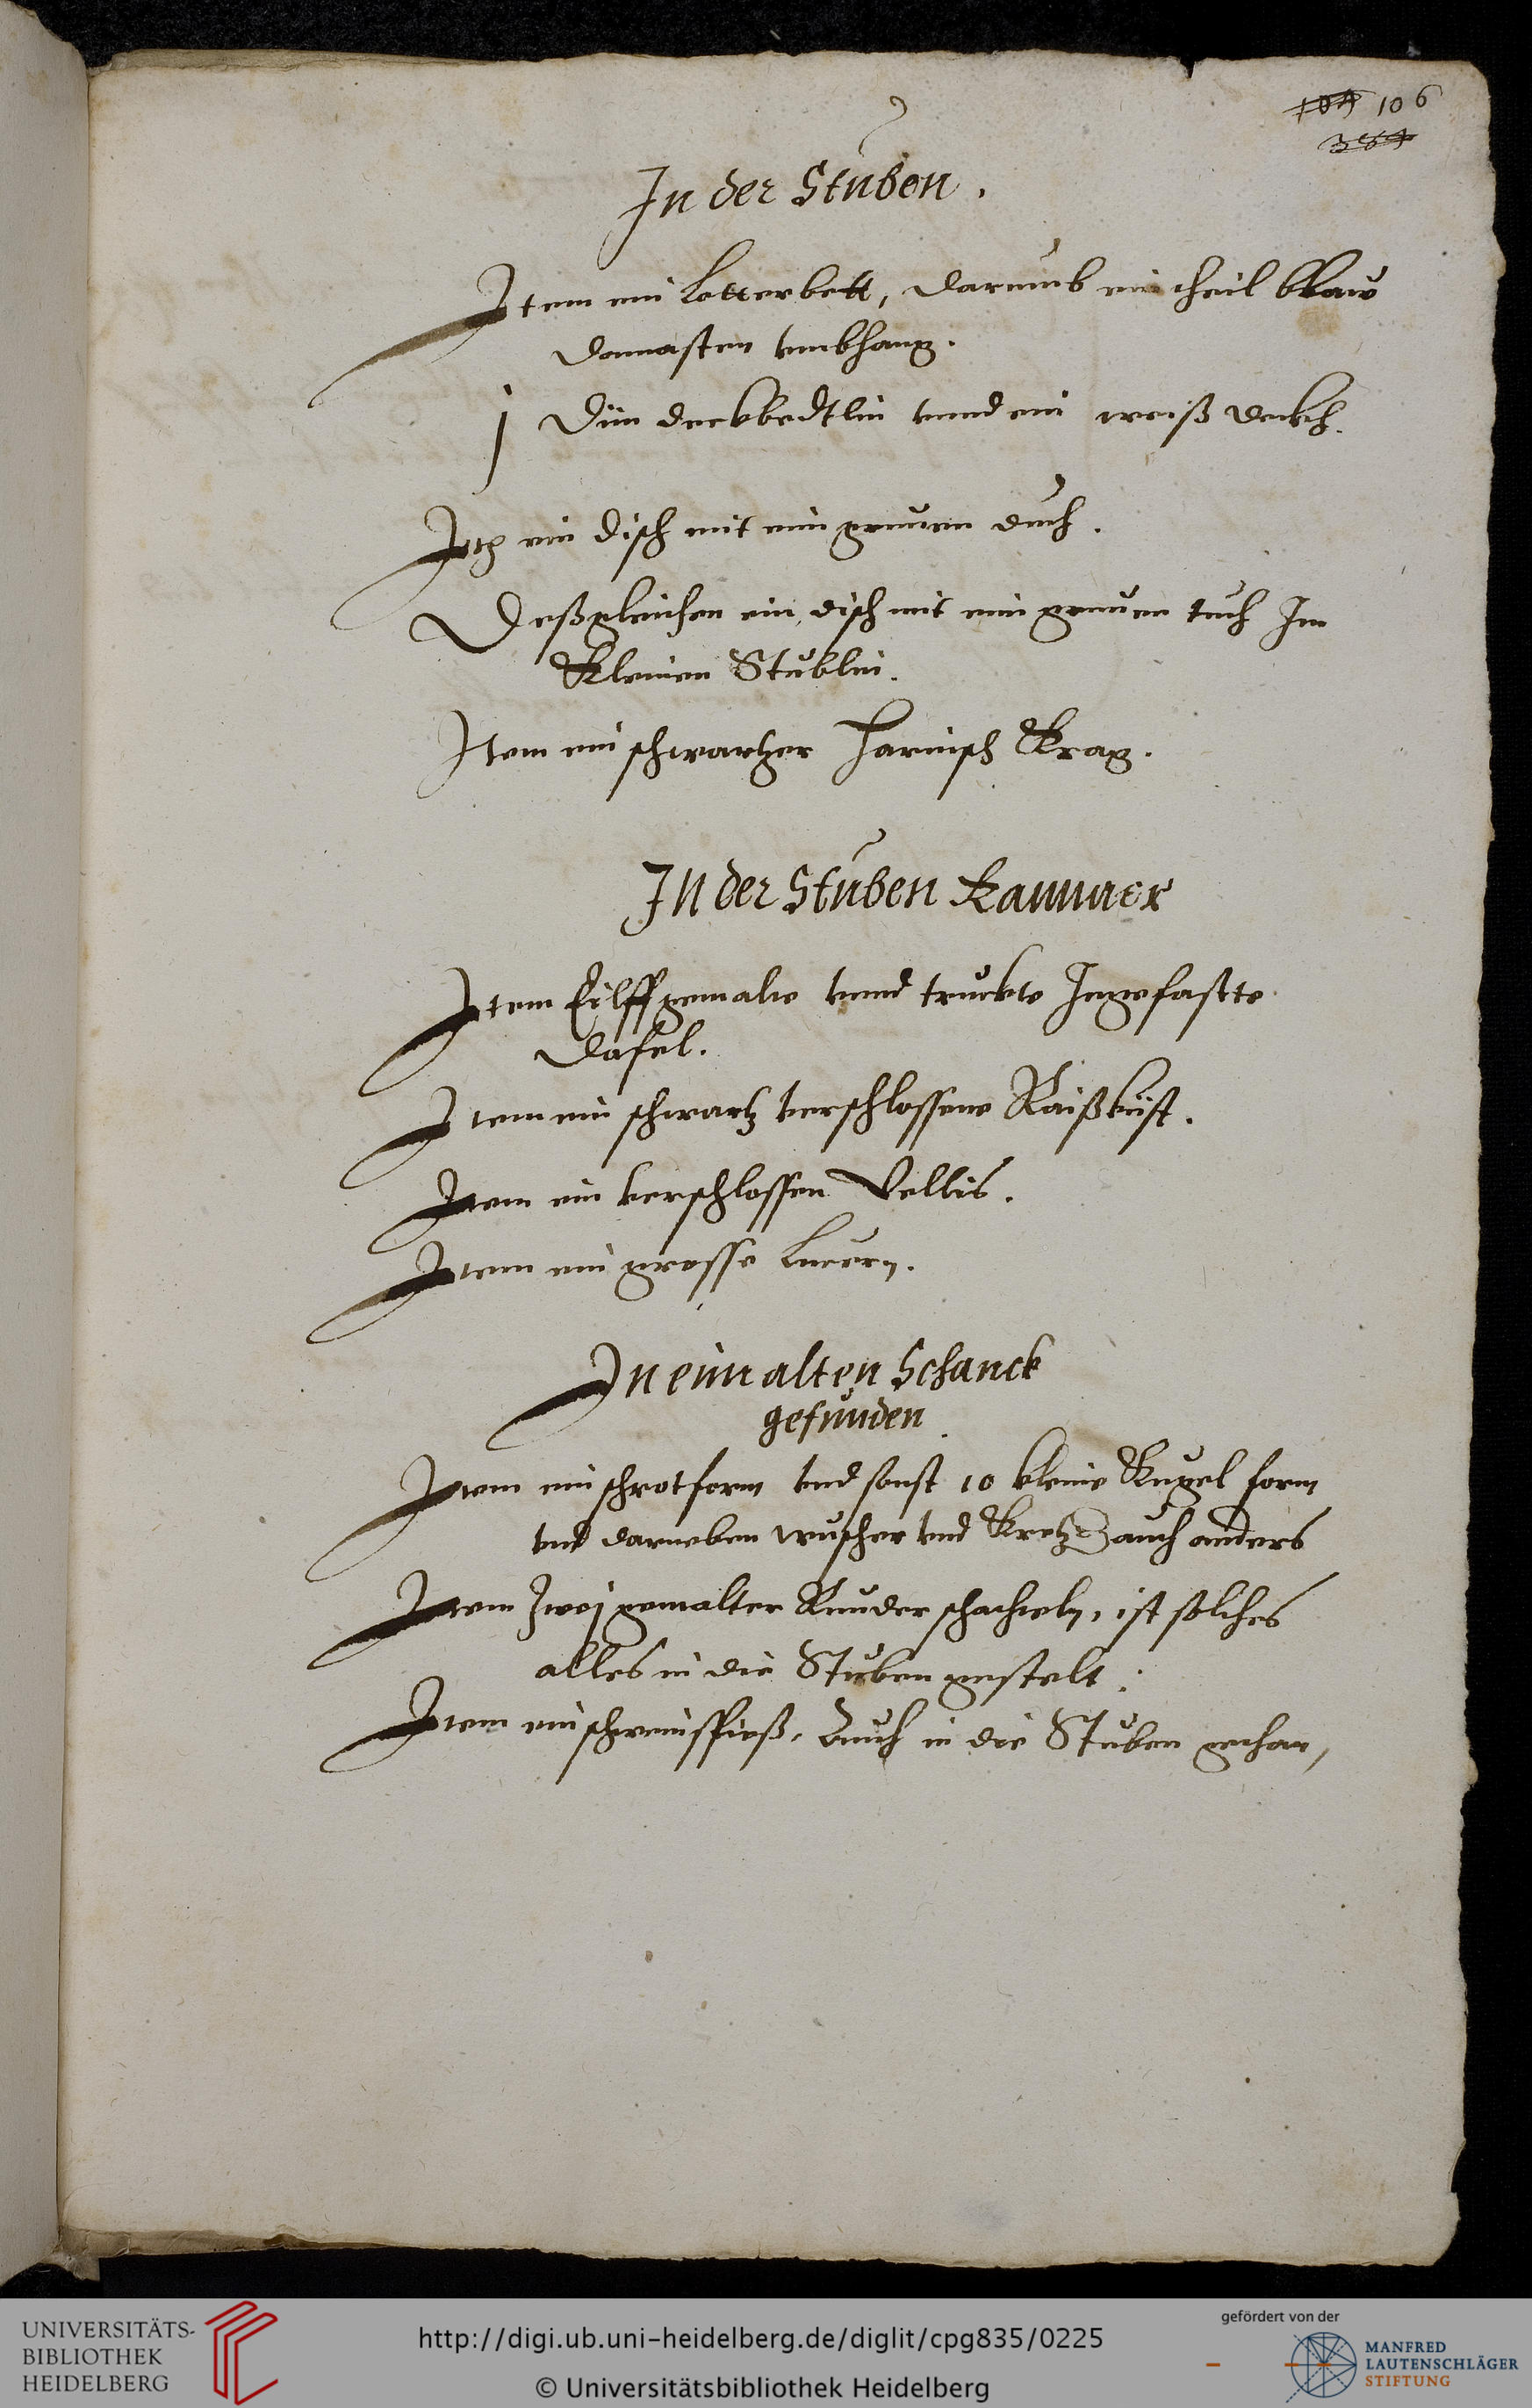 106
In der Stuben.
Item ein Lotterbett, darumb ein theil blaw
damasten umbhang.
j Dün deckbedtlin unnd ein weiß deckh.
Itẽ ein disch mit eim grunen duch.
Deßgleichen ein disch mit eim grunen tuch Im
Kleinen Stublin.
Item ein schwartzer Harnisch Krag.
In der Stuben kammer
Item Eilff gemalte unnd truckte Ingefaste
Dafel.
Item ein schwartz verschlossene Raißkist.
Item ein verschlossen Vellis.
Item ein grosse Lucern.
In eim alten Schanck
gefunden.
Item ein schrotform und sonst 10 kleine Kugel form
und darneben wuscher und Kretzer auch anders
Item Zwej gemalter Runder schachteln, ist solches
alles in die Stuben gestelt.
Item ein schweinspieß, Auch in die Stuben gethan,
UNIVERSITÄTS-
BIBLIOTHEK
HEIDELBERG
http://digi.ub.uni-heidelberg.de/diglit/cpg835/0225
© Universitätsbibliothek Heidelberg
gefördert von der
MANFRED
LAUTENSCHLÄGER
STIFTUNG